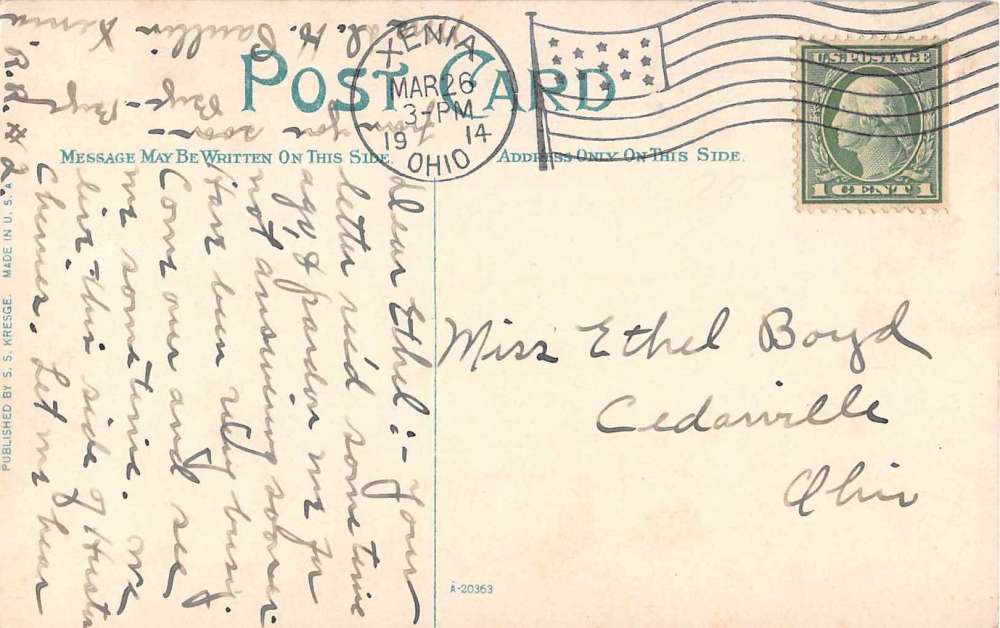 POST CARD
XENIA
MAR 26
3-PM
19 14
OHIO
U.S. POSTAGE
1 CENT 1
MESSAGE MAY BE WRITTEN ON THIS SIDE.
ADDRESS ONLY ON THIS SIDE.
Dear Ethel:- Your
letter rec'd some time
ago, & pardon me for
not answering sooner.
Have been very busy
Come over and see
me sometime. We
live this side of
Chenies. Let me hear
from you soon-
Bye - Bye
H.
Xenia
R.R. # 2.
Miss Ethel Boyd
Cedarville
Ohio
PUBLISHED BY S. S. KRESGE. MADE IN U. S. A.
A-20363